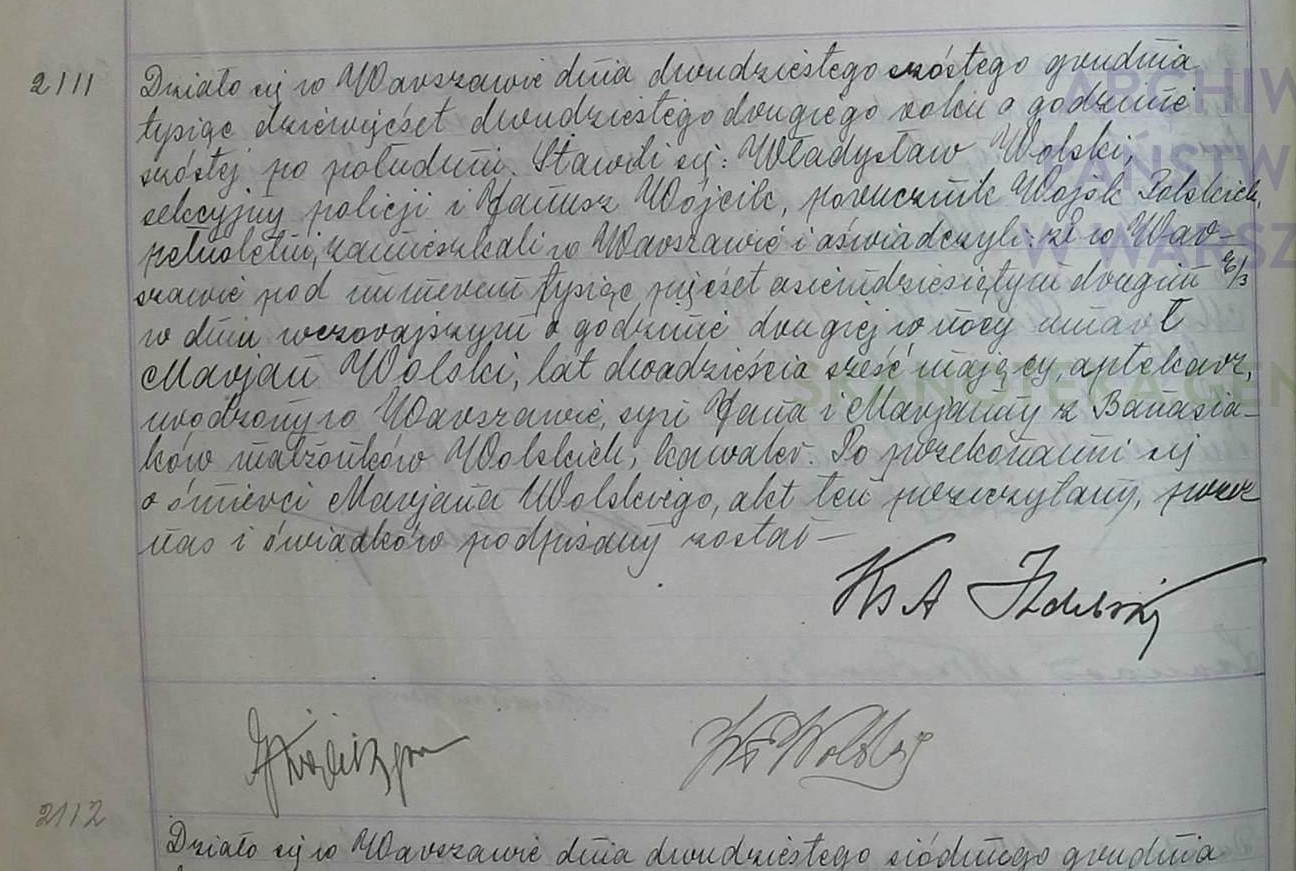 2111
Działo się w Warszawie dnia dwudziestego szóstego grudnia
tysiąc dziewięćset dwudziestego drugiego roku o godzinie
szóstej po południu. Stawili się: Władysław Wolski,
sekcyjny policji i Janusz Wójcik, porucznik Wojsk Polskich,
pełnoletni, zamieszkali w Warszawie i oświadczyli: że w War-
szawie pod numerem tysiąc pięćset osiemdziesiątym drugim
w dniu wczorajszym o godzinie drugiej w nocy umarł
Marjan Wolski, lat dwadzieścia sześć mający, aptekarz,
urodzony w Warszawie, syn Jana i Marjanny z Banasia-
ków małżonków Wolskich, kawaler. Po przekonaniu się
o śmierci Marjana Wolskiego, akt ten przeczytany, przez
nas i świadków podpisany został —
Ks A
Wł Wolski
2112
Działo się w Warszawie dnia dwudziestego siódmego grudnia
ARCHIW
PAŃSTW
W WARSZ
SKANOTEKA GEN